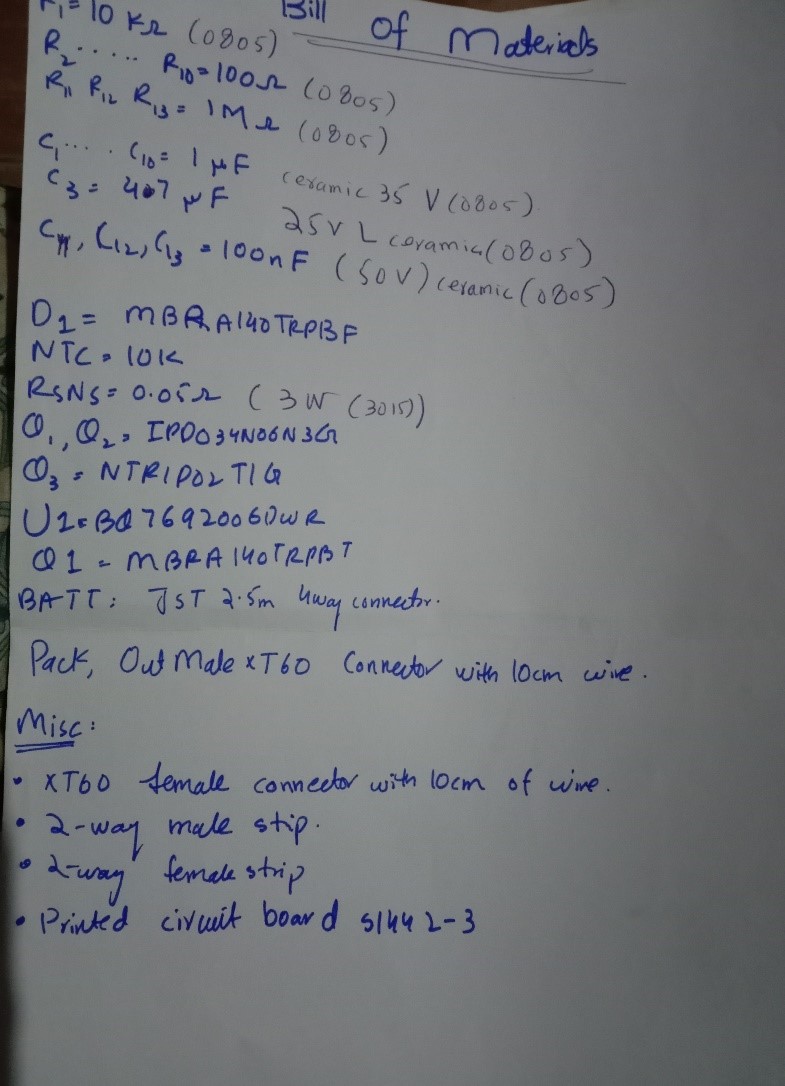 Bill of Materials
R1 = 10 KΩ (0805)
R2 ...... R10 = 100Ω (0805)
R11 R12 R13 = 1MΩ (0805)
C1 .... C10 = 1 μF ceramic 35 V (0805)
C3 = 4.7 μF 25V L ceramic (0805)
C11, C12, C13 = 100nF (50V) ceramic (0805)
D1 = MBRA140TRPBF
NTC = 10K
RSNS = 0.05Ω (3W (3015))
Q1, Q2 = IPD034N06N3G
Q3 = NTR1P02T1G
U1 = BQ7692006DWR
Q1 = MBRA140TRPBT
BATT: JST 2.5m 4way connector.
Pack, Out Male XT60 Connector with 10cm wire.
Misc:
• XT60 female connector with 10cm of wire.
• 2-way male stip.
• 2-way female strip
• Printed circuit board S1442-3